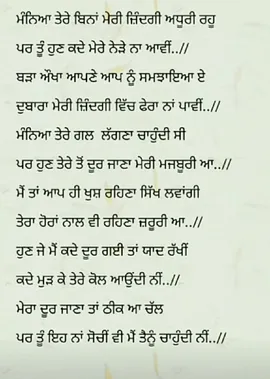 ਮੰਨਿਆ ਤੇਰੇ ਬਿਨਾਂ ਮੇਰੀ ਜ਼ਿੰਦਗੀ ਅਧੂਰੀ ਰਹੂ
ਪਰ ਤੂੰ ਹੁਣ ਕਦੇ ਮੇਰੇ ਨੇੜੇ ਨਾ ਆਵੀਂ..//
ਬੜਾ ਔਖਾ ਆਪਣੇ ਆਪ ਨੂੰ ਸਮਝਾਇਆ ਏ
ਦੁਬਾਰਾ ਮੇਰੀ ਜ਼ਿੰਦਗੀ ਵਿੱਚ ਫੇਰਾ ਨਾਂ ਪਾਵੀਂ..//
ਮੰਨਿਆ ਤੇਰੇ ਗਲ ਲੱਗਣਾ ਚਾਹੁੰਦੀ ਸੀ
ਪਰ ਹੁਣ ਤੇਰੇ ਤੋਂ ਦੂਰ ਜਾਣਾ ਮੇਰੀ ਮਜਬੂਰੀ ਆ..//
ਮੈਂ ਤਾਂ ਆਪ ਹੀ ਖੁਸ਼ ਰਹਿਣਾ ਸਿੱਖ ਲਵਾਂਗੀ
ਤੇਰਾ ਹੋਰਾਂ ਨਾਲ ਵੀ ਰਹਿਣਾ ਜ਼ਰੂਰੀ ਆ..//
ਹੁਣ ਜੇ ਮੈਂ ਕਦੇ ਦੂਰ ਗਈ ਤਾਂ ਯਾਦ ਰੱਖੀਂ
ਕਦੇ ਮੁੜ ਕੇ ਤੇਰੇ ਕੋਲ ਆਉਂਦੀ ਨੀਂ..//
ਮੇਰਾ ਦੂਰ ਜਾਣਾ ਤਾਂ ਠੀਕ ਆ ਚੱਲ
ਪਰ ਤੂੰ ਇਹ ਨਾਂ ਸੋਚੀਂ ਵੀ ਮੈਂ ਤੈਨੂੰ ਚਾਹੁੰਦੀ ਨੀਂ..//